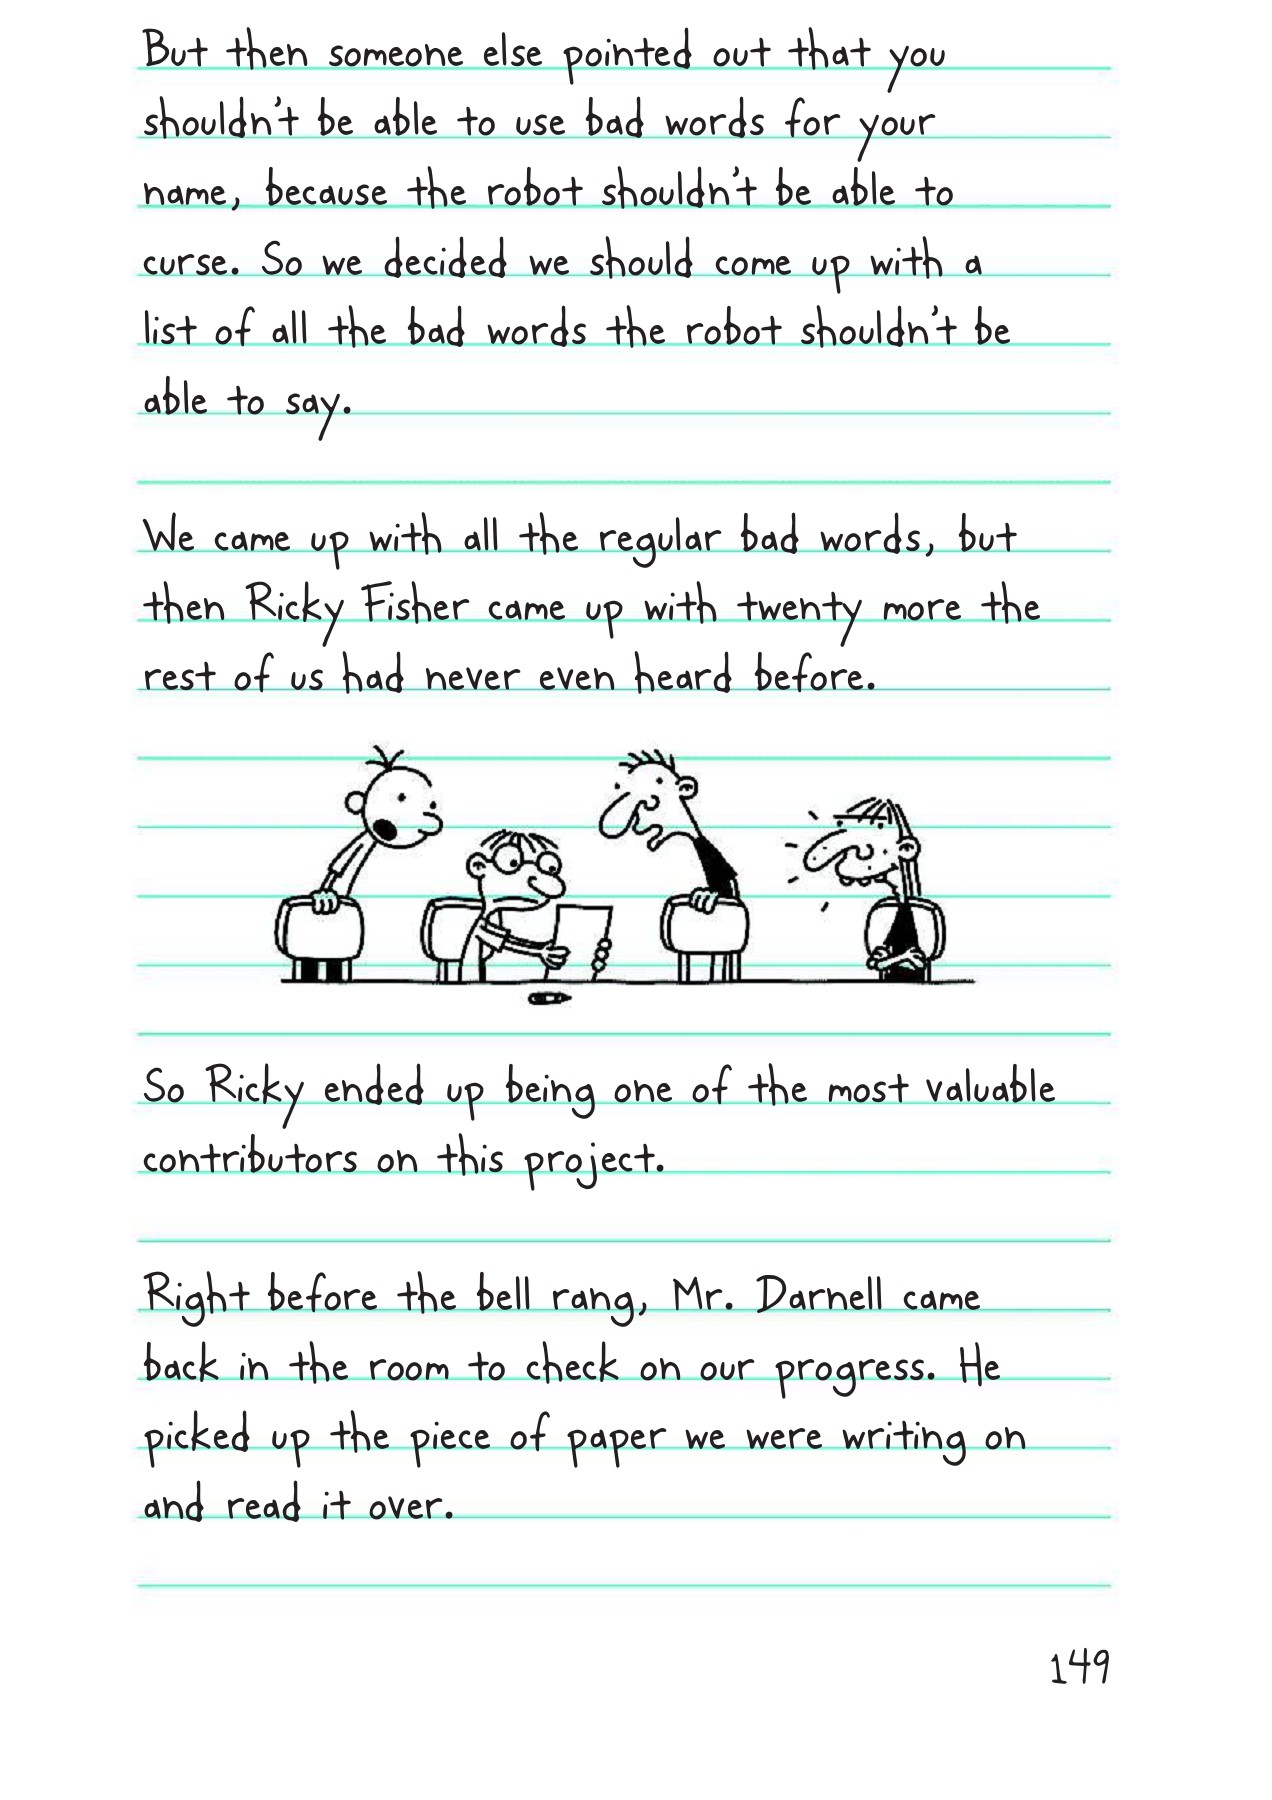 But then someone else pointed out that you
shouldn't be able to use bad words for your
name, because the robot shouldn't be able to
curse. So we decided we should come up with a
list of all the bad words the robot shouldn't be
able to say.
We came up with all the regular bad words, but
then Ricky Fisher came up with twenty more the
rest of us had never even heard before.
So Ricky ended up being one of the most valuable
contributors on this project.
Right before the bell rang, Mr. Darnell came
back in the room to check on our progress. He
picked up the piece of paper we were writing on
and read it over.
149